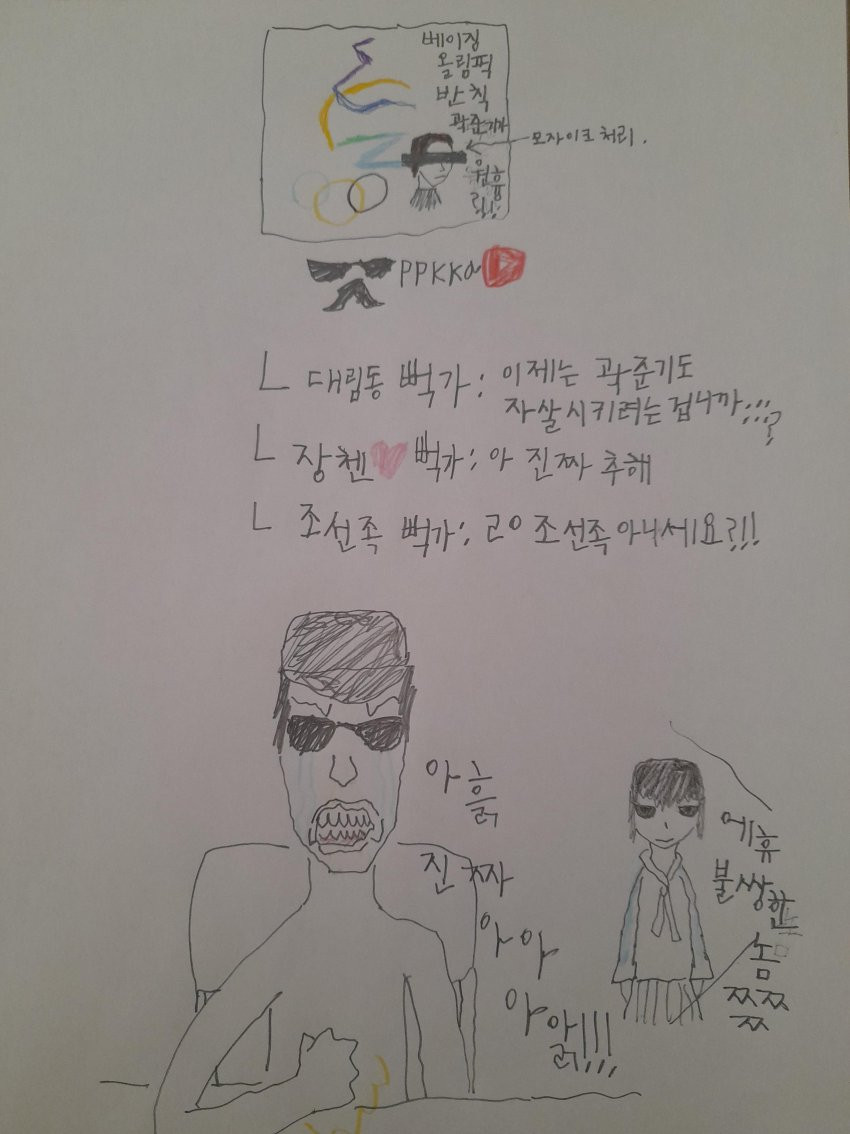 베이징
올림픽
반칙
곽준기가
모자이크 처리.
원흉
PPKKa
ㄴ 대림동 뻑가: 이제는 곽준기도
자살시키려는겁니까;;;?
ㄴ 장첸 뻑가: 아 진짜 추해
ㄴ 조선족 뻑가: 고이 조선족아니세요?!!
아흙
진짜
아아
아앍!!!
에휴
불쌍한
놈
쯧쯧
쯧